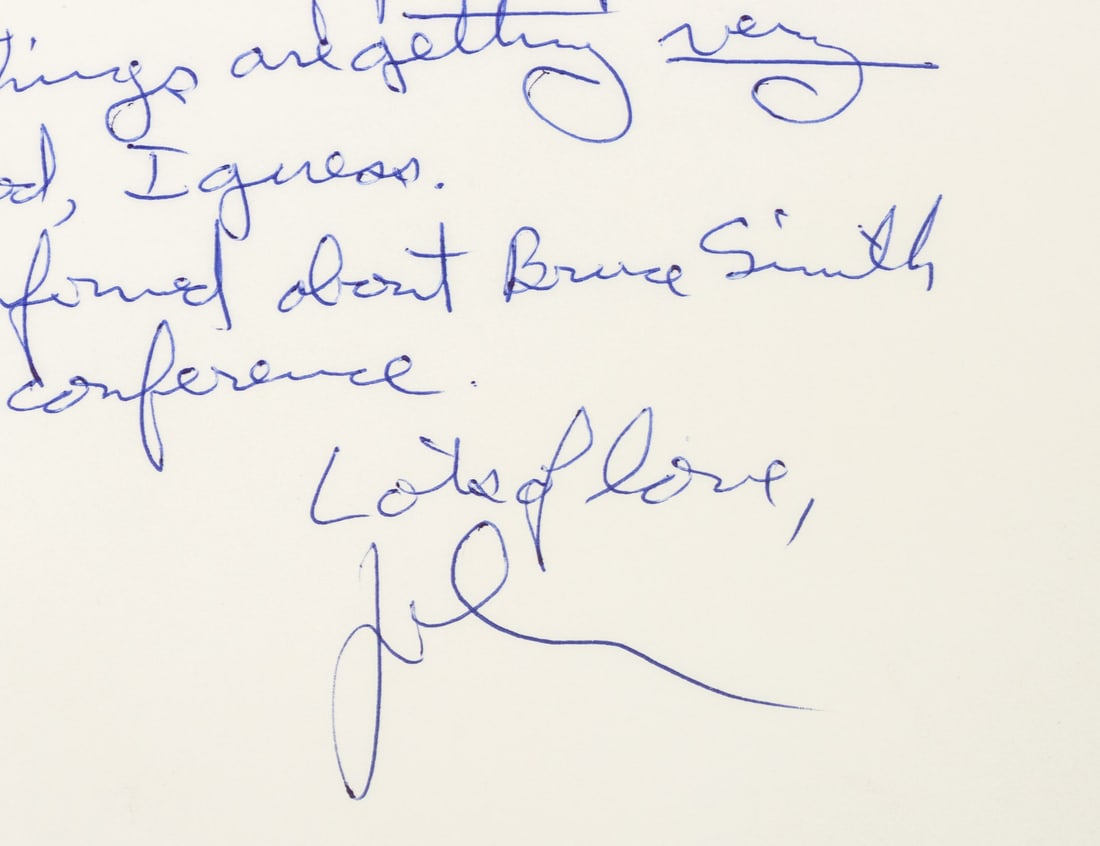 things are getting very
od, I guess.
formed about Bruce Smith
conference.
Lots of love,
John